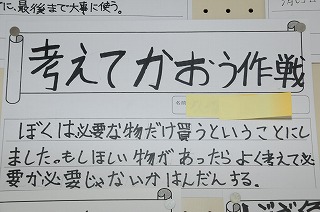 に、最後まで大事に使う。
考えてかおう作戦
名前
ぼくは必要な物だけ買うということにし
ました。もしほしい物があったらよく考えて必
要か必要じゃないかはんだんする。